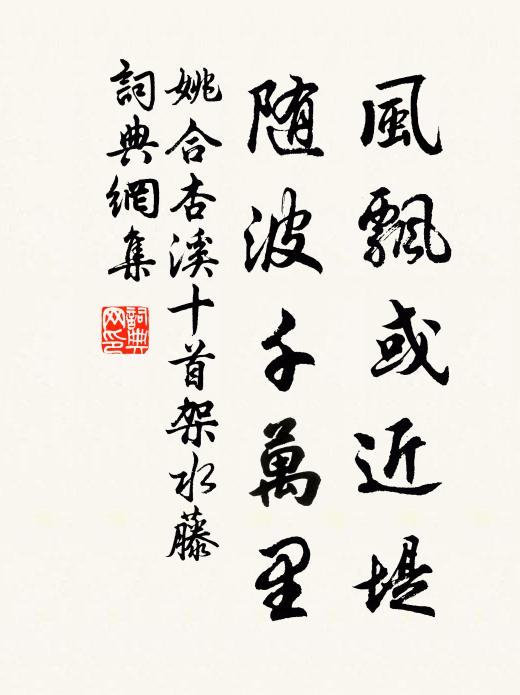 風飄或近堤
随波千萬里
姚合杏溪十首架水藤
詞典網集
詞典
网印